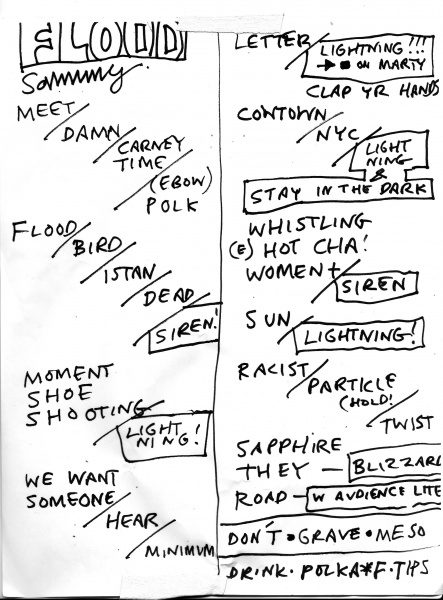 FLOOD
Sammy
MEET
DAMN
CARNEY
TIME
(EBOW)
POLK
FLOOD
BIRD
ISTAN
DEAD
SIREN!
MOMENT
SHOE
SHOOTING
LIGHT
NING!
WE WANT
SOMEONE
HEAR
MINIMUM
LETTER
LIGHTNING!!!
→ ■ ON MARTY
CLAP YR HANDS
COWTOWN
NYC
LIGHT
NING
&
STAY IN THE DARK
WHISTLING
(E) HOT CHA!
WOMEN +
SIREN
SUN
LIGHTNING!
RACIST
PARTICLE
(HOLD!
TWIST
SAPPHIRE
THEY – BLIZZARD
ROAD – W AUDIENCE LITE
DON'T • GRAVE • MESO
DRINK • POLKA * F • TIPS